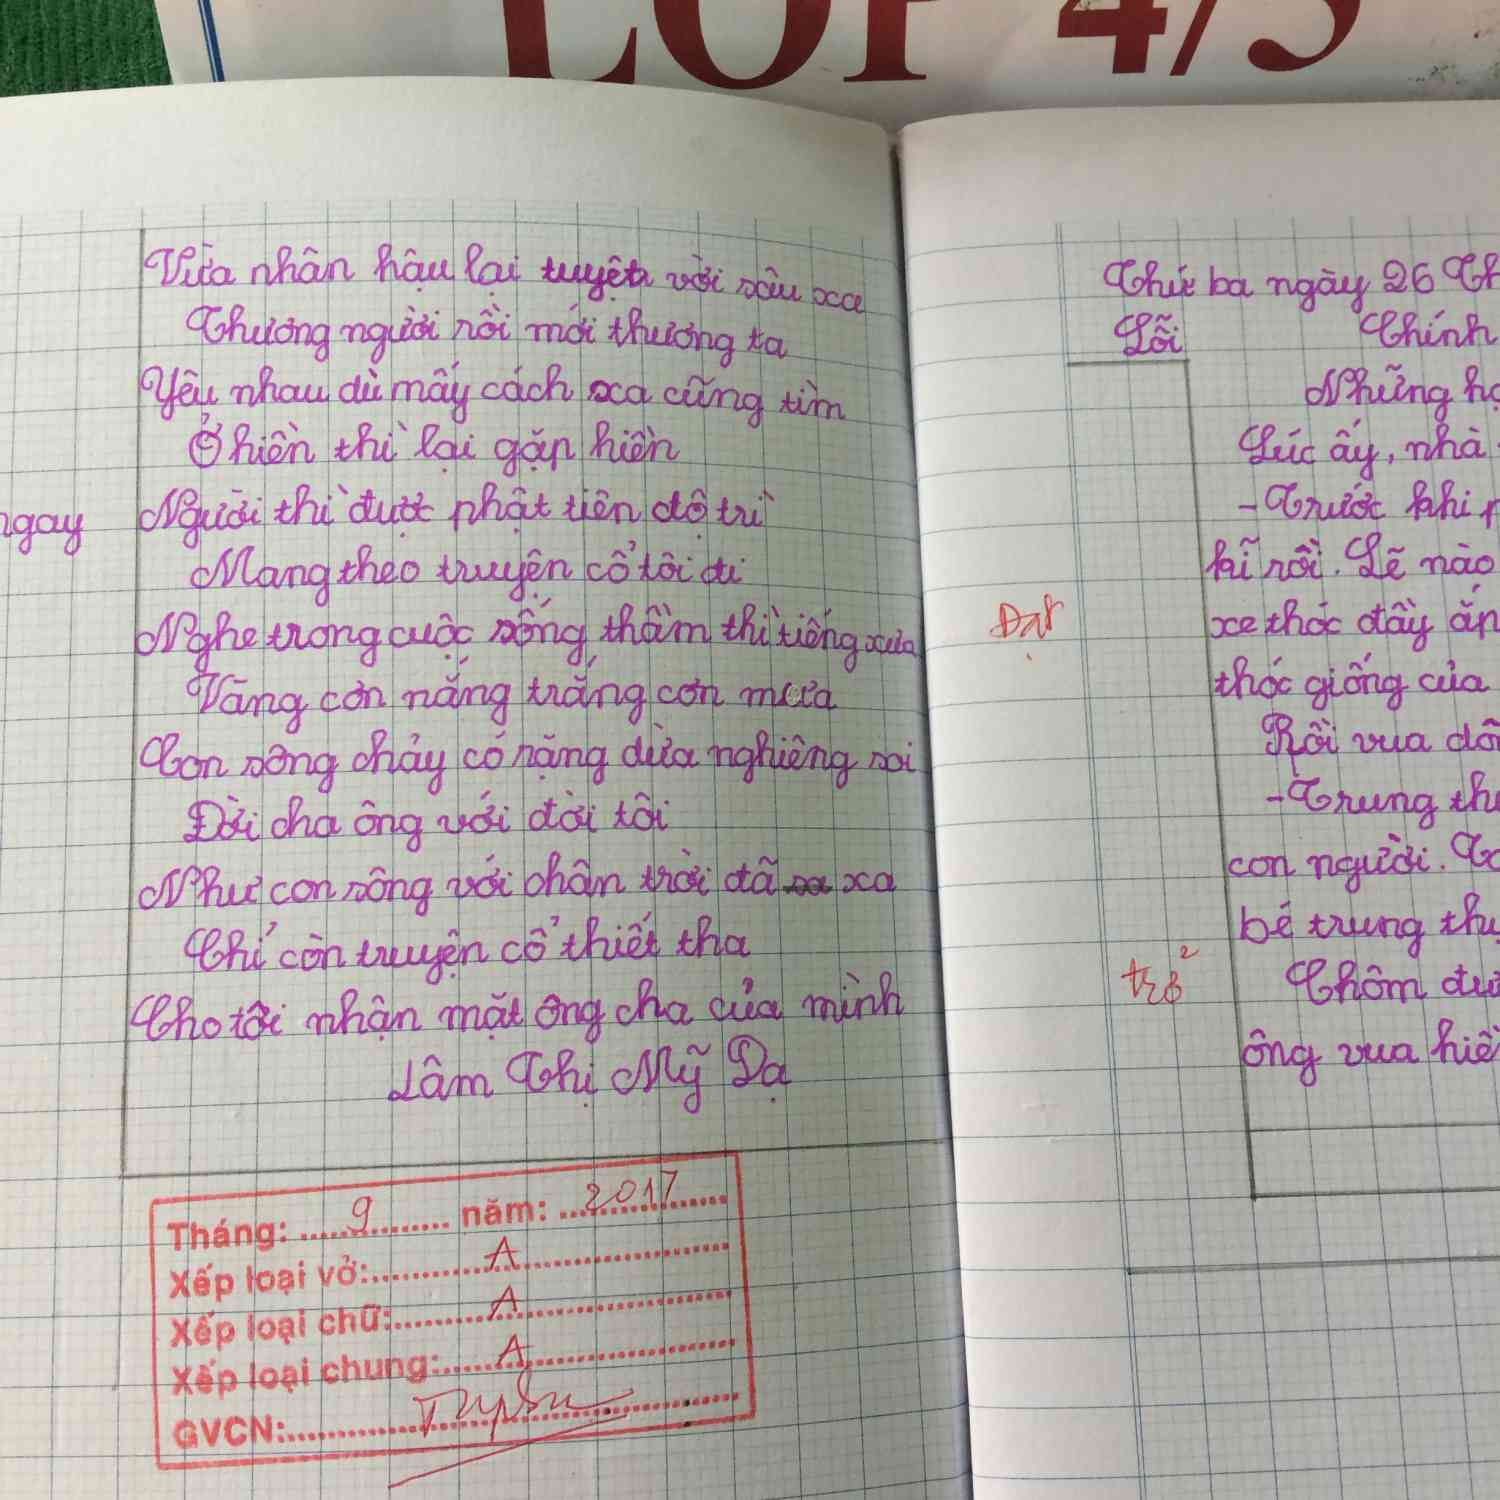 LỚP 4/5
Vừa nhân hậu lại tuyệt vời sâu xa
Thương người rồi mới thương ta
Yêu nhau dù mấy cách xa cũng tìm
Ở hiền thì lại gặp hiền
ngay
Người thì được phật tiên độ trì
Mang theo truyện cổ tôi đi
Nghe trong cuộc sống thầm thì tiếng xưa
Vàng cơn nắng trắng cơn mưa
Con sông chảy có rặng dừa nghiêng soi
Đời cha ông với đời tôi
Như con sông với chân trời đã xa
Chỉ còn truyện cổ thiết tha
Cho tôi nhận mặt ông cha của mình
Lâm Thị Mỹ Dạ
Tháng: 9 năm: 2017
Xếp loại vở: A
Xếp loại chữ: A
Xếp loại chung: A
GVCN:
Thứ ba ngày 26 Th
Lỗi Chính
Những hạ
Lúc ấy, nhà
- Trước khi
kĩ rồi. Lẽ nào
xe thóc đầy ắp
thóc giống của
Rồi vua dõ
- Trung thự
con người.
bé trung thự
Chôm đư
ông vua hiề